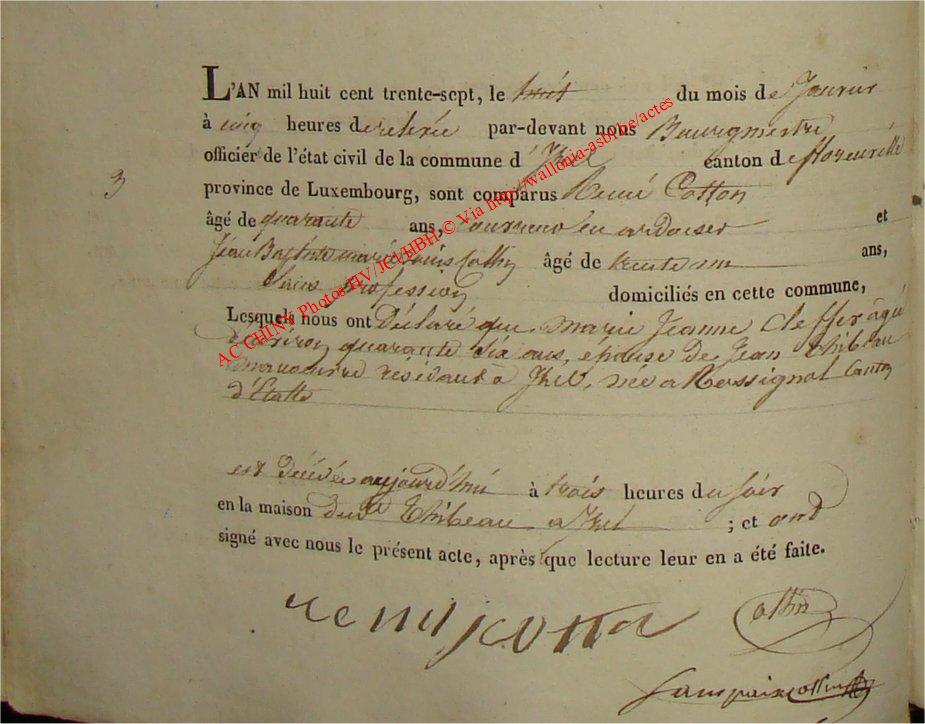 L'AN mil huit cent trente-sept, le huit du mois de Janvier
à cinq heures de relevée par-devant nous Bourgmestre
officier de l'état civil de la commune d'Izel canton de florenville
3
province de Luxembourg, sont comparus René Cotton
âgé de quarante ans, en ardoises et
Jean Baptiste marie Louis âgé de trente un ans,
Sans profession domiciliés en cette commune,
Lesquels nous ont Déclaré que marie Jeanne Cleffer âgée
d'environ quarante six ans, épouse de Jean Thibeau
manoeuvre residant à Izel, née a Rossignol Canton
d'Etalle
est Décédée aujourd'hui à trois heures du soir
en la maison dud Thibeau a Izel ; et ont
signé avec nous le présent acte, après que lecture leur en a été faite.
AC CHINY Photos HV/JCl/HBH © Via http://wallonia-asbl.be/actes